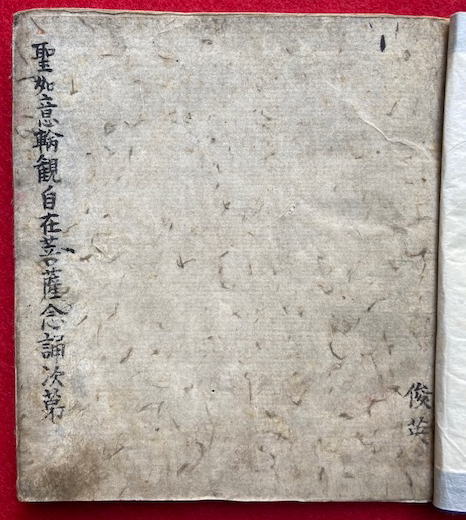 聖如意輪観自在菩薩念誦次第
俊英